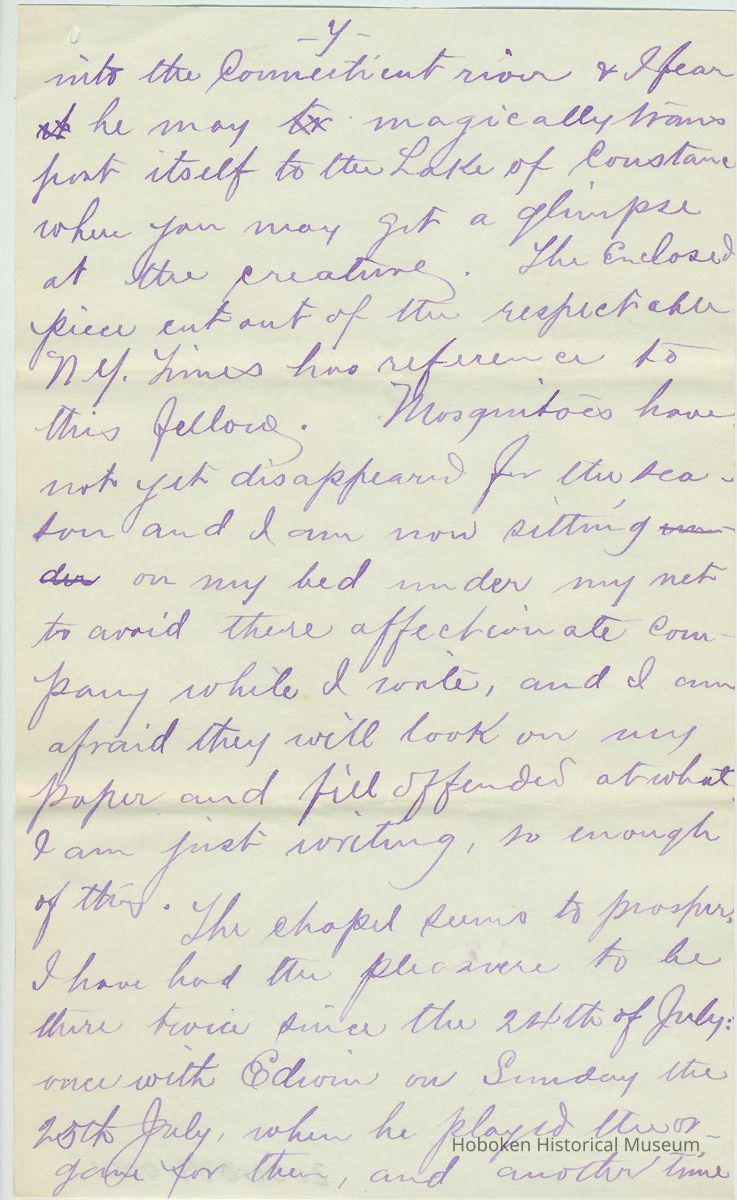 -7-
into the Connecticut river & I fear
it he may to magically trans
port itself to the Lake of Constance
where you may get a glimpse
at the creature. The Enclosed
piece cut out of the respectable
N.Y. Times has reference to
this fellow. Mosquitoes have
not yet disappeared for the sea-
son and I am now sitting un-
der on my bed under my net
to avoid there affectionate com-
pany while I write, and I am
afraid they will look on my
paper and fill offended at what
I am just writing, so enough
of this. The chapel seems to prosper,
I have had the pleasure to be
there twice since the 24th of July:
once with Edwin on Sunday the
25th July, when he played the or-
gane for them, and another time
Hoboken Historical Museum